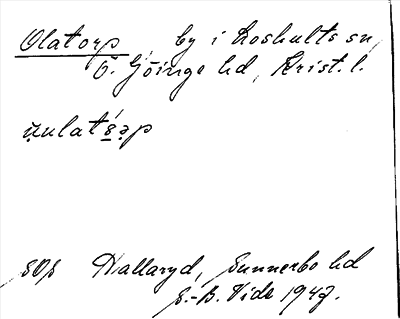 Olatorp, by i Loshults sn,
Ö. Göinge hd, Krist. l.
sop Hallaryd, Sunnerbo hd
S.-B. Vide 1947.